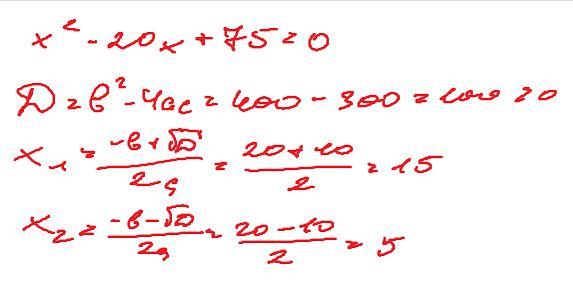 x² - 20x + 75 = 0
D = b² - 4ac = 400 - 300 = 100 > 0
x₁ = (-b + √D) / 2a = (20 + 10) / 2 = 15
x₂ = (-b - √D) / 2a = (20 - 10) / 2 = 5